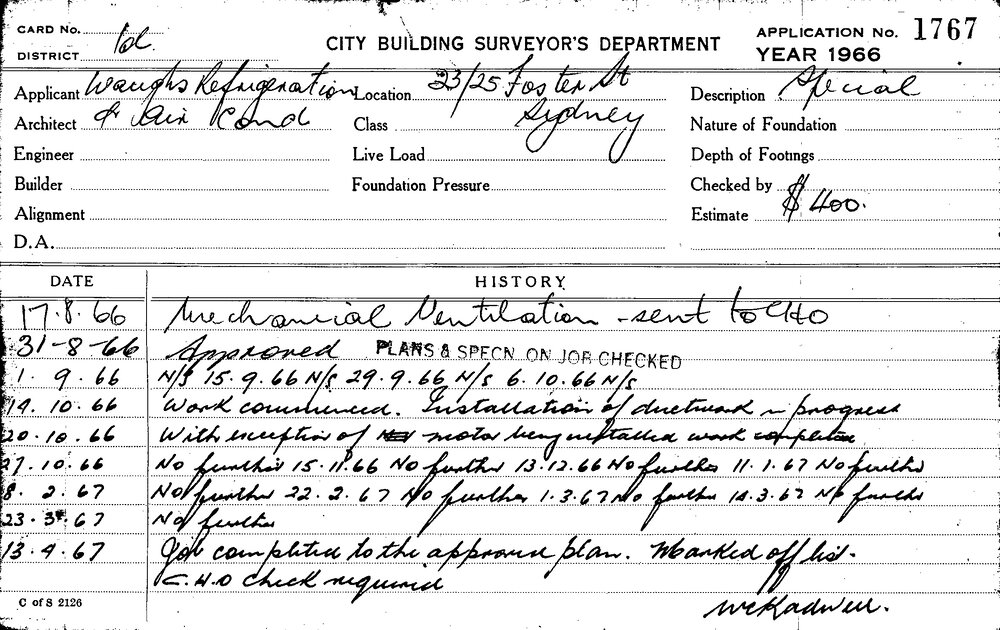 CARD No.
DISTRICT
CITY BUILDING SURVEYOR'S DEPARTMENT
APPLICATION No. 1767
YEAR 1966
Applicant Waughs Refrigeration
Location 23/25 Foster St
Description Special
Architect & Air Cond
Class Sydney
Nature of Foundation
Engineer
Live Load
Depth of Footings
Builder
Foundation Pressure
Checked by
Alignment
Estimate $ 400.
D.A.
DATE HISTORY
17.8.66 Mechanical Ventilation - sent to CHO
31-8-66 Approved PLANS & SPECN. ON JOB CHECKED
1. 9. 66 N/S 15.9.66 N/S 29.9.66 N/S 6.10.66 N/S
14. 10. 66 Work commenced. Installation of ductwork in progress
20.10.66 With exception of motor being installed work completed
27.10.66 No further 15.11.66 No further 13.12.66 No further 11.1.67 No further
8. 2. 67 No further 22.2.67 No further 1.3.67 No further 14.3.67 No further
23.3.67 No further
13.4.67 Job completed to the approved plan. Marked off list.
C.H.O check required
C of S 2126